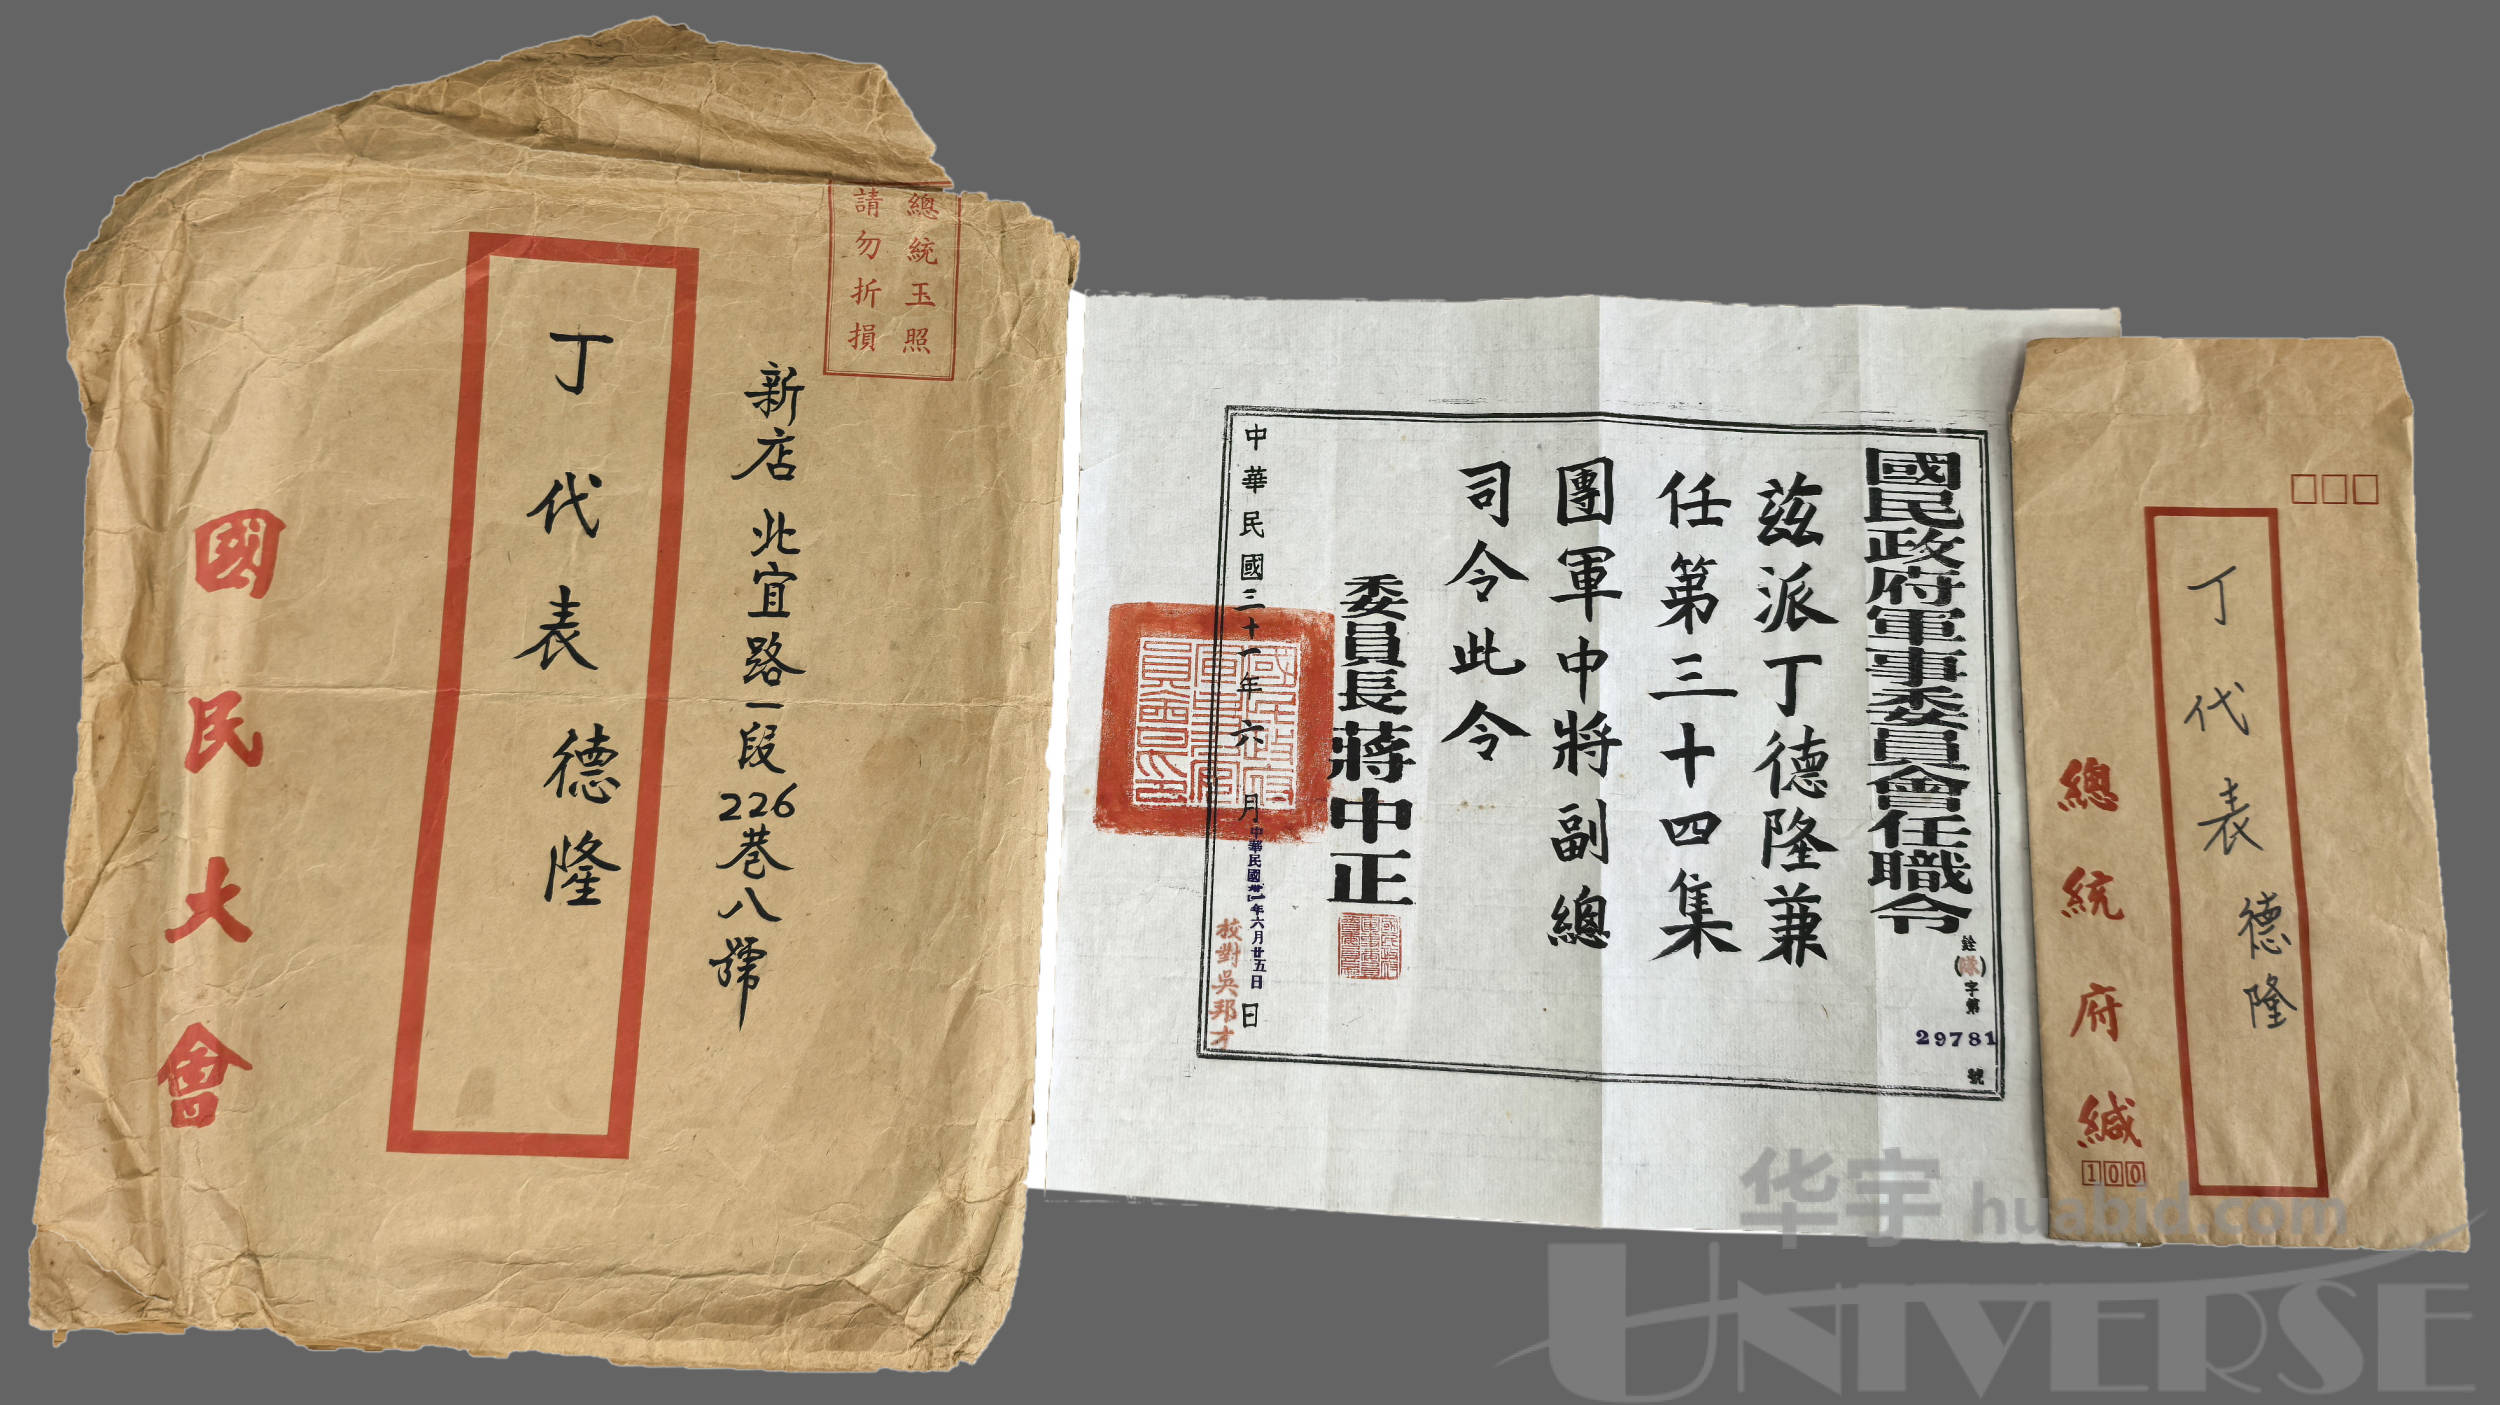 總統玉照
請勿折損
新店北宜路一段226巷八號
丁代表德隆
國民大會
國民政府軍事委員會任職令
銓(隊)字第29781號
茲派丁德隆兼
任第三十四集
團軍中將副總
司令此令
委員長蔣中正
中華民國三十一年六月日
中華民國卅一年六月廿五日
校對吳邦才
國民政府軍事委員會印
丁代表德隆
總統府緘
100
华宇 huabid.com
UNIVERSE